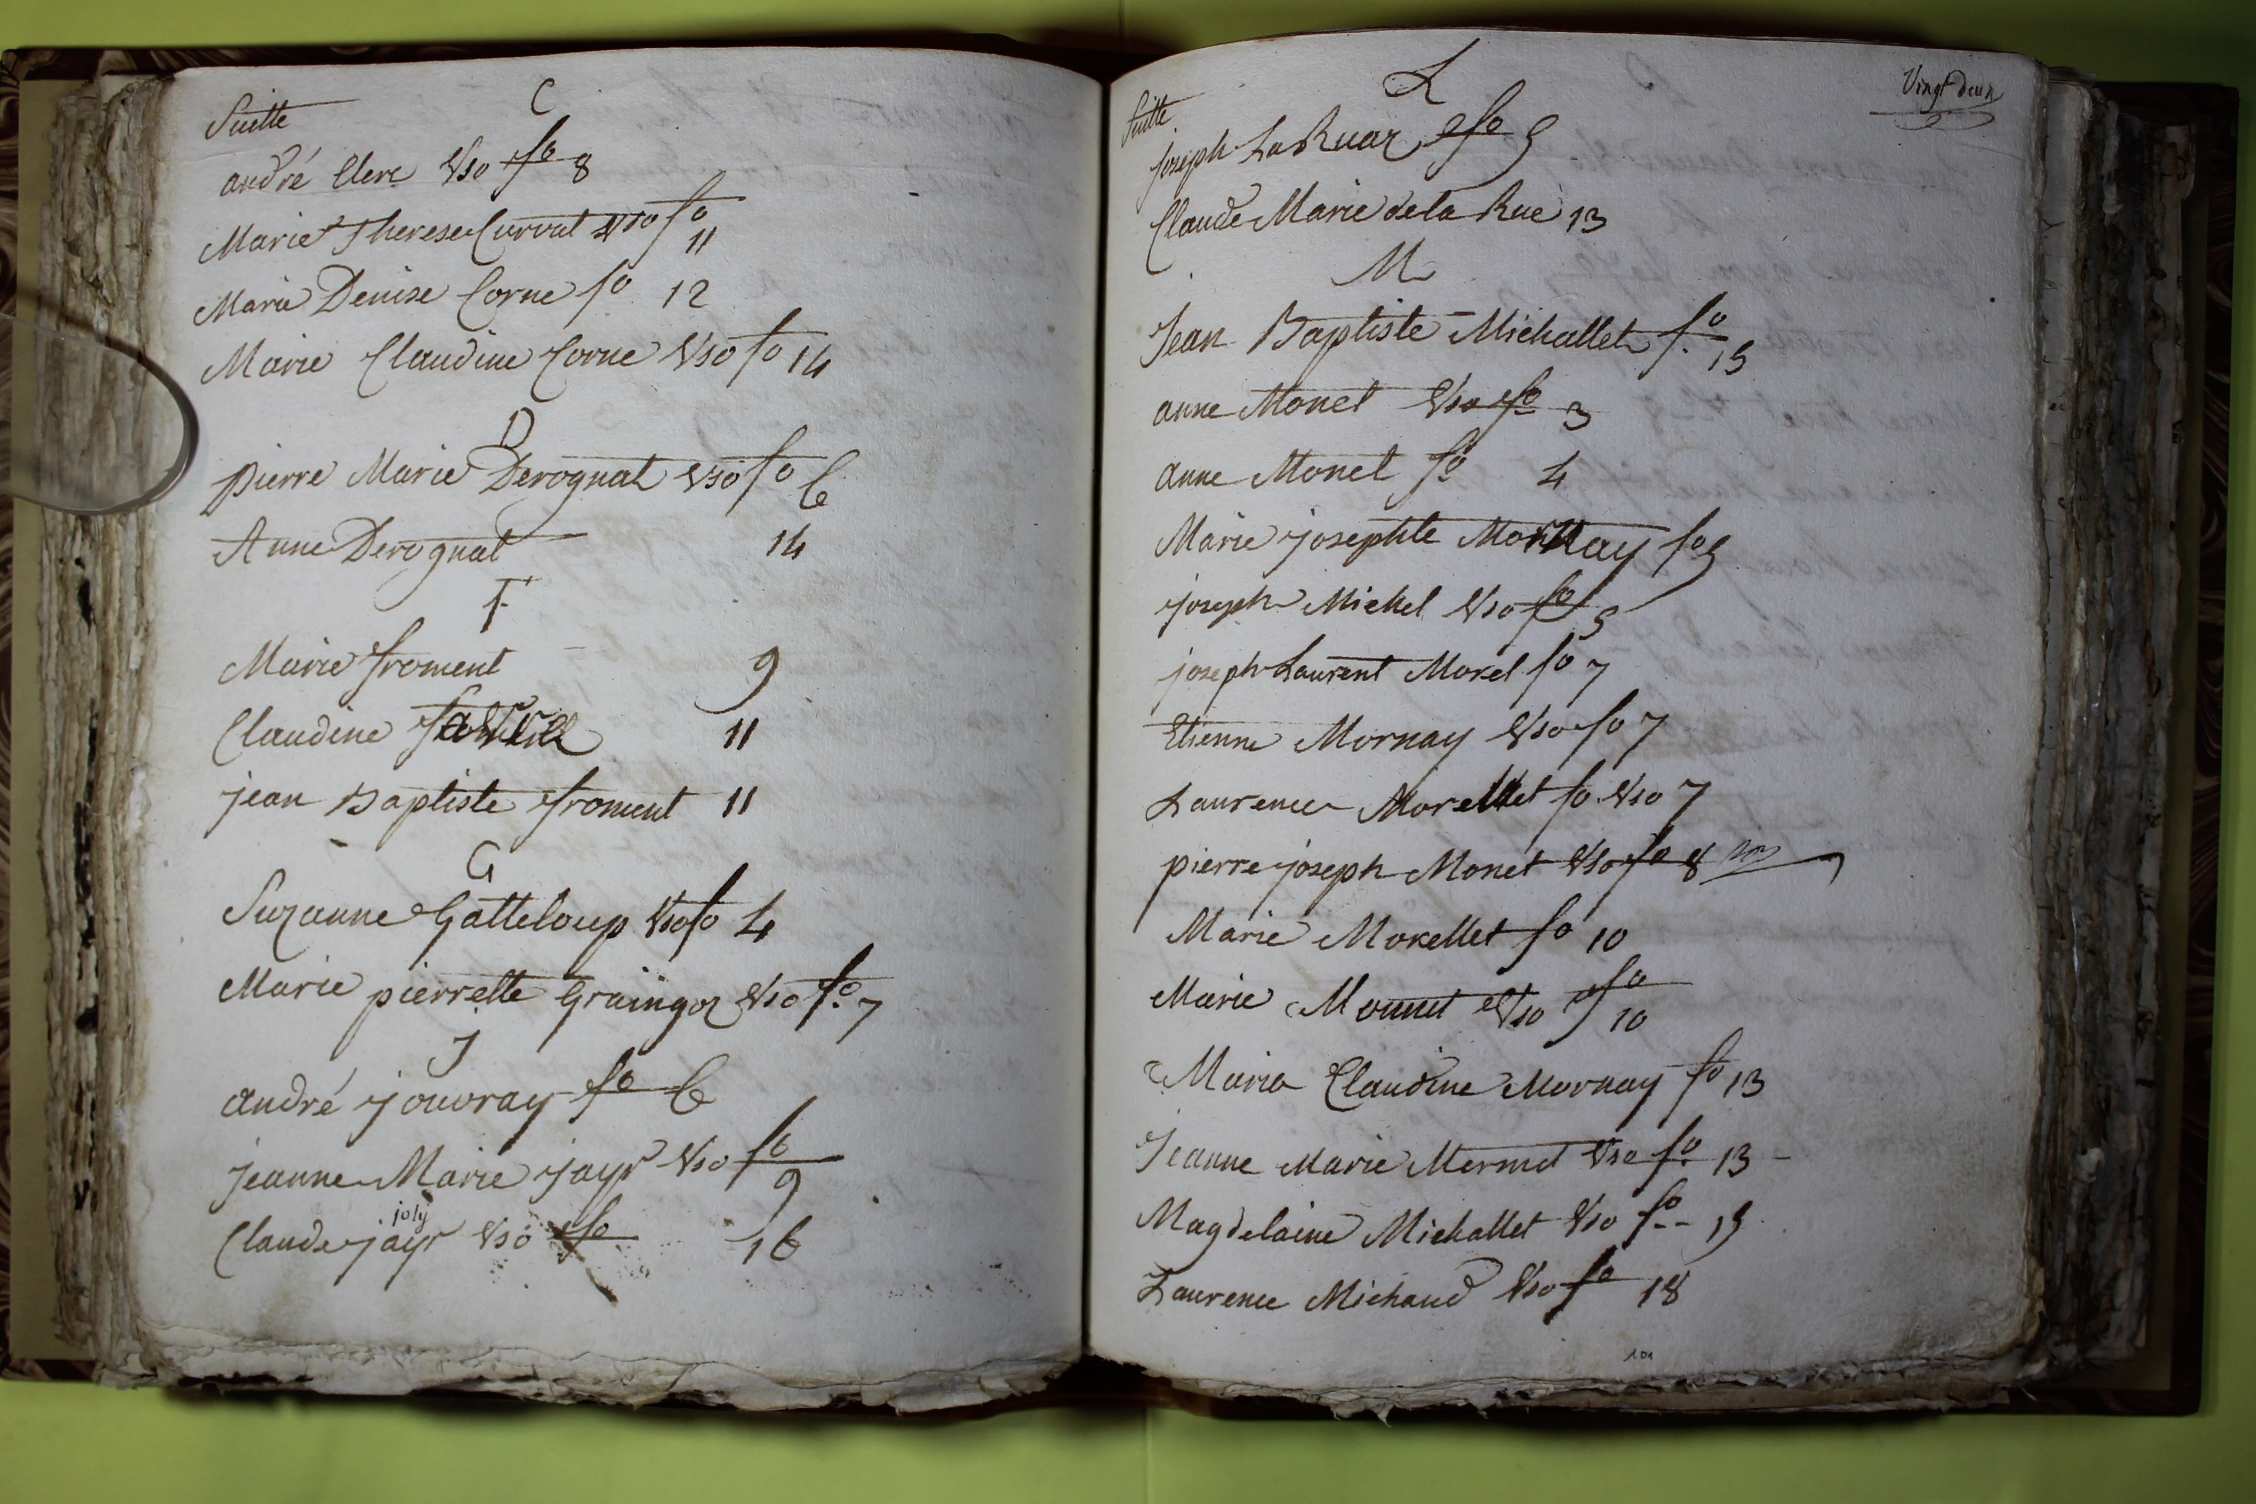 Suitte
C
andré Clerc Vso fo 8
Marie Therese Curvat Vso fo 11
Marie Denise Corne fo 12
Marie Claudine Corne Vso fo 14
D
pierre Marie Derognat Vso fo 6
Anne Derognat 14
F
Marie froment 9
Claudine 11
jean Baptiste froment 11
G
Suzanne Gatteloup Vso fo 4
Marie pierrette Graingoz Vso fo 7
J
andré jouvray fo 6
jeanne Marie jayr Vso fo 9
joly
Claude jayr Vso fo 16
Vingt deux
L
Suitte
joseph LaRuaz fo 5
Claude Marie de la Rue 13
M
Jean Baptiste Michallet fo 15
anne Monet Vso fo 3
anne Monet fo 4
Marie josephte Mornay fo 5
joseph Michel Vso fo 5
joseph Laurent Morel fo 7
Etienne Mornay Vso fo 7
Laurence Morellet fo Vso 7
pierre joseph Monet Vso fo 8
Marie Morellet fo 10
Marie Monnet Vso fo 10
Maria Claudine Mornay fo 13
Jeanne Marie Mermet Vso fo 13
Magdelaine Michallet Vso fo 15
Laurence Michaud Vso fo 18
101